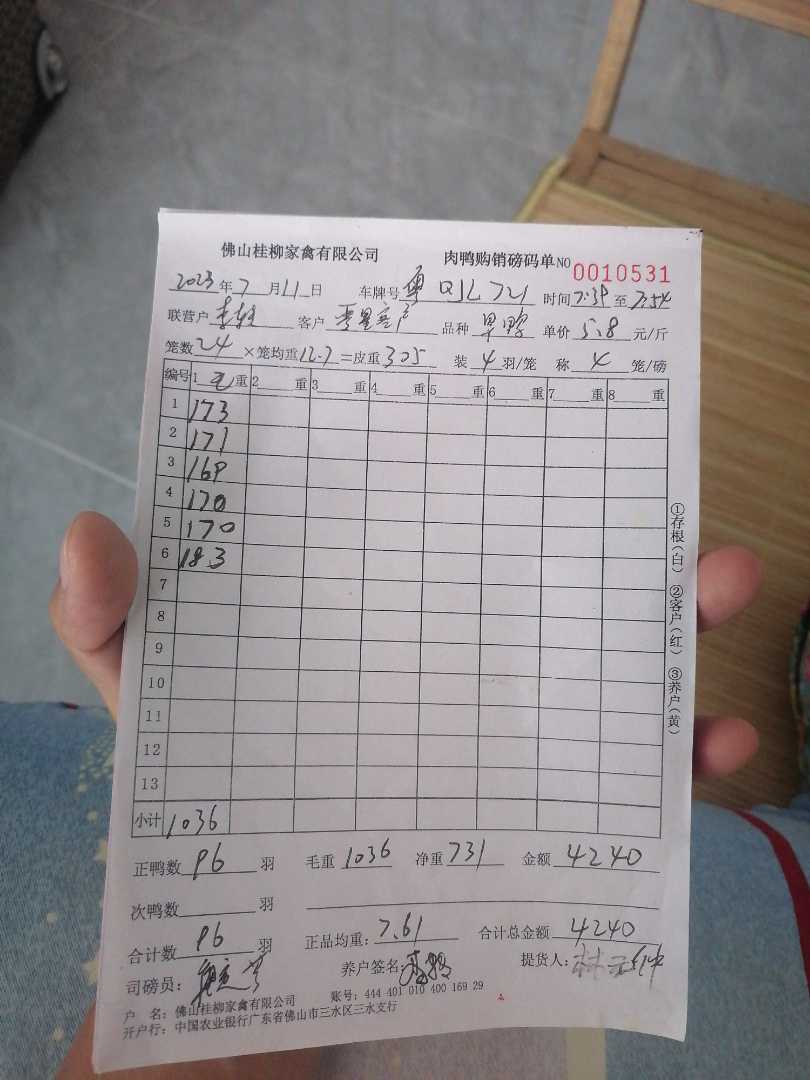 佛山桂柳家禽有限公司 肉鸭购销磅码单NO 0010531
2023年7月11日 车牌号 粤QJL721 时间7:39至7:54
联营户 客户 品种 单价5.8元/斤
笼数24×笼均重12.7=皮重305 装4羽/笼 称4笼/磅
编号 1毛重 2重 3重 4重 5重 6重 7重 8重
1 173
2 171
3 169
4 170
5 170
6 183
7
8
9
10
11
12
13
小计 1036
正鸭数96羽 毛重1036 净重731 金额4240
次鸭数 羽
合计数96羽 正品均重:7.61 合计总金额4240
司磅员: 养户签名: 提货人:
户 名:佛山桂柳家禽有限公司 账号:444 401 010 400 169 29
开户行:中国农业银行广东省佛山市三水区三水支行
①存根(白) ②客户(红) ③养户(黄)